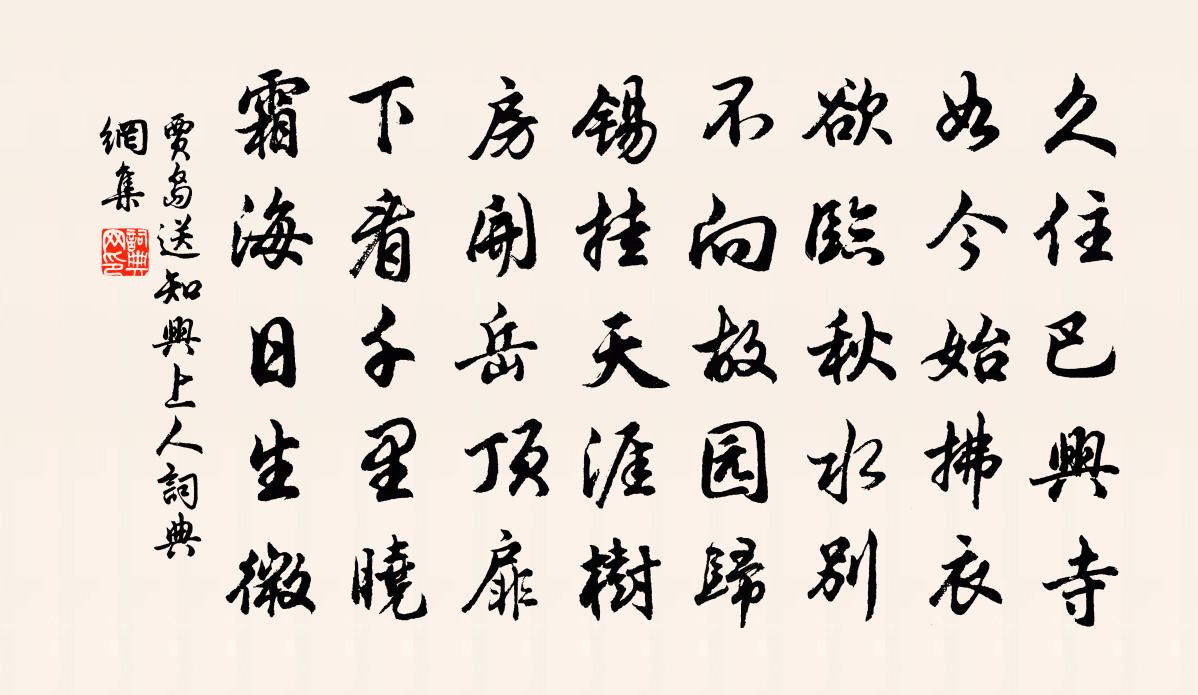 久住巳興寺
如今始拂衣
欲臨秋水別
不向故园歸
錫挂天涯樹
房開岳頂扉
下看千里曉
霜海日生微
賈島送知興上人詞典
網集
詞典
网印